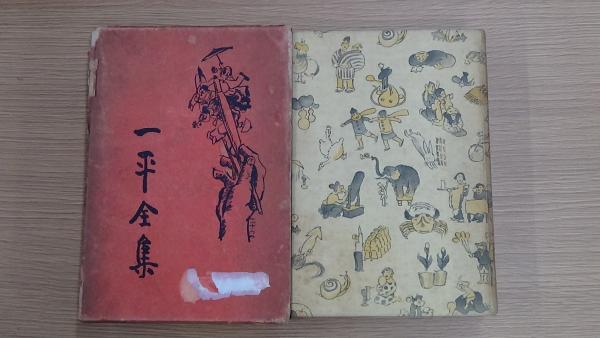 一平全集